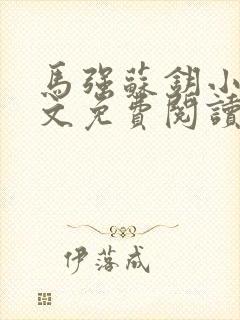 馬強蘇鈅小
文免費閱讀
伊落成